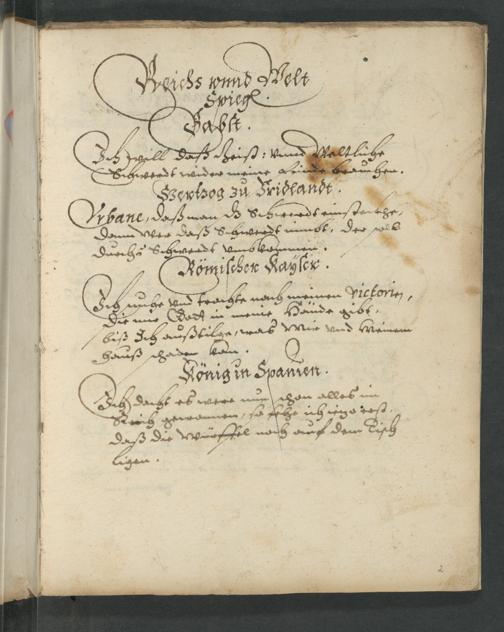 Reichs vnnd Welt
Spiegl.
Pabst.
Ich will daß Geist: vnnd Weltliche
Schwerdt wider meine feinde brauchen.
Hertzog zu Fridlandt.
Vrbane, daß man das Schwerdt einstecke,
dann wer daß Schwerdt nimbt, der soll
durchs Schwerdt vmbkommen.
Römischer Kayser.
Ich nutze vnd trachte nach meinen victorien,
die mir Gott in meine Hände gibt,
biß Ich außtilge, was Mir vnd Meinem
Hauß schaden kan.
König in Spanien.
Ich dacht es were nun schon alles im
Reich gewonnen, so sehe ich iezo erst,
daß die Würffel noch auf dem Tisch
ligen.
2